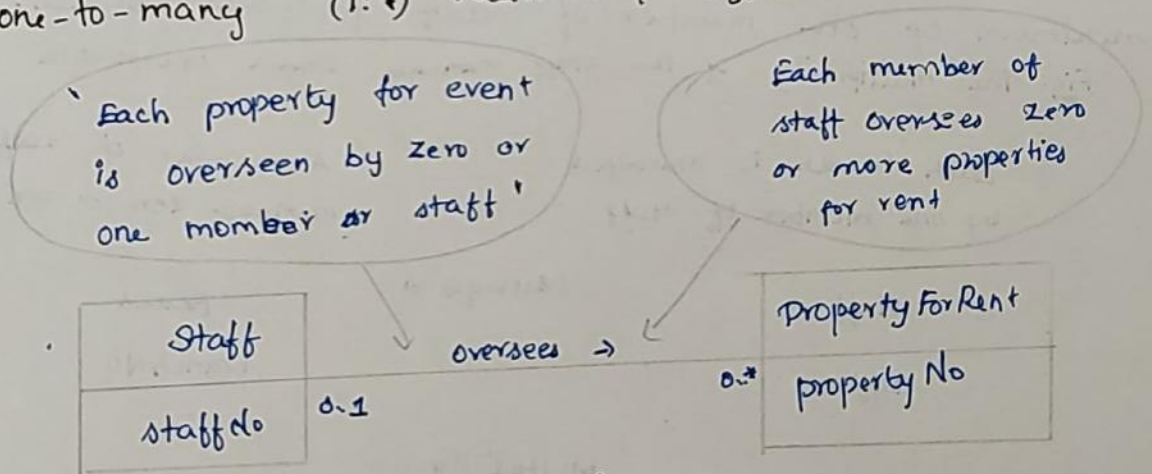 one-to-many (1:*)
'Each property for event
is overseen by zero or
one mombeir or staff'
Each member of
staff oversees zero
or more properties
for rent
Staff
staffNo
0..1
oversees →
0..*
Property For Rent
property No